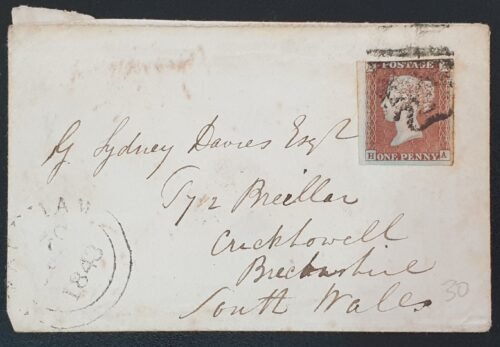 POSTAGE
H ONE PENNY A
G Sydney Davies Esqr
Tyr
Crickhowell
Brecknshire
South Wales
1843
30